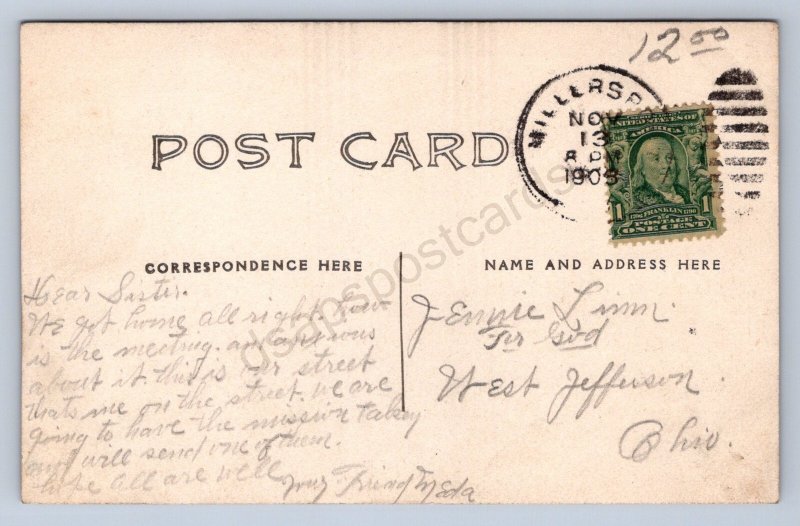 12 00
MILLERSB
NOV
13
8 PM
1908
SERIES 1902
UNITED STATES OF
AMERICA
1 1706 FRANKLIN 1790 1
POSTAGE
ONE CENT
POST CARD
CORRESPONDENCE HERE
NAME AND ADDRESS HERE
Dear Sister.
We got home all right. how
is the meeting. am anxious
about it. this is our street
thats me on the street. we are
going to have the mission
and will send one of them.
hope all are well
your Friend Meda
Jennie Linn.
West Jefferson.
Ohio.
dsapspostcards